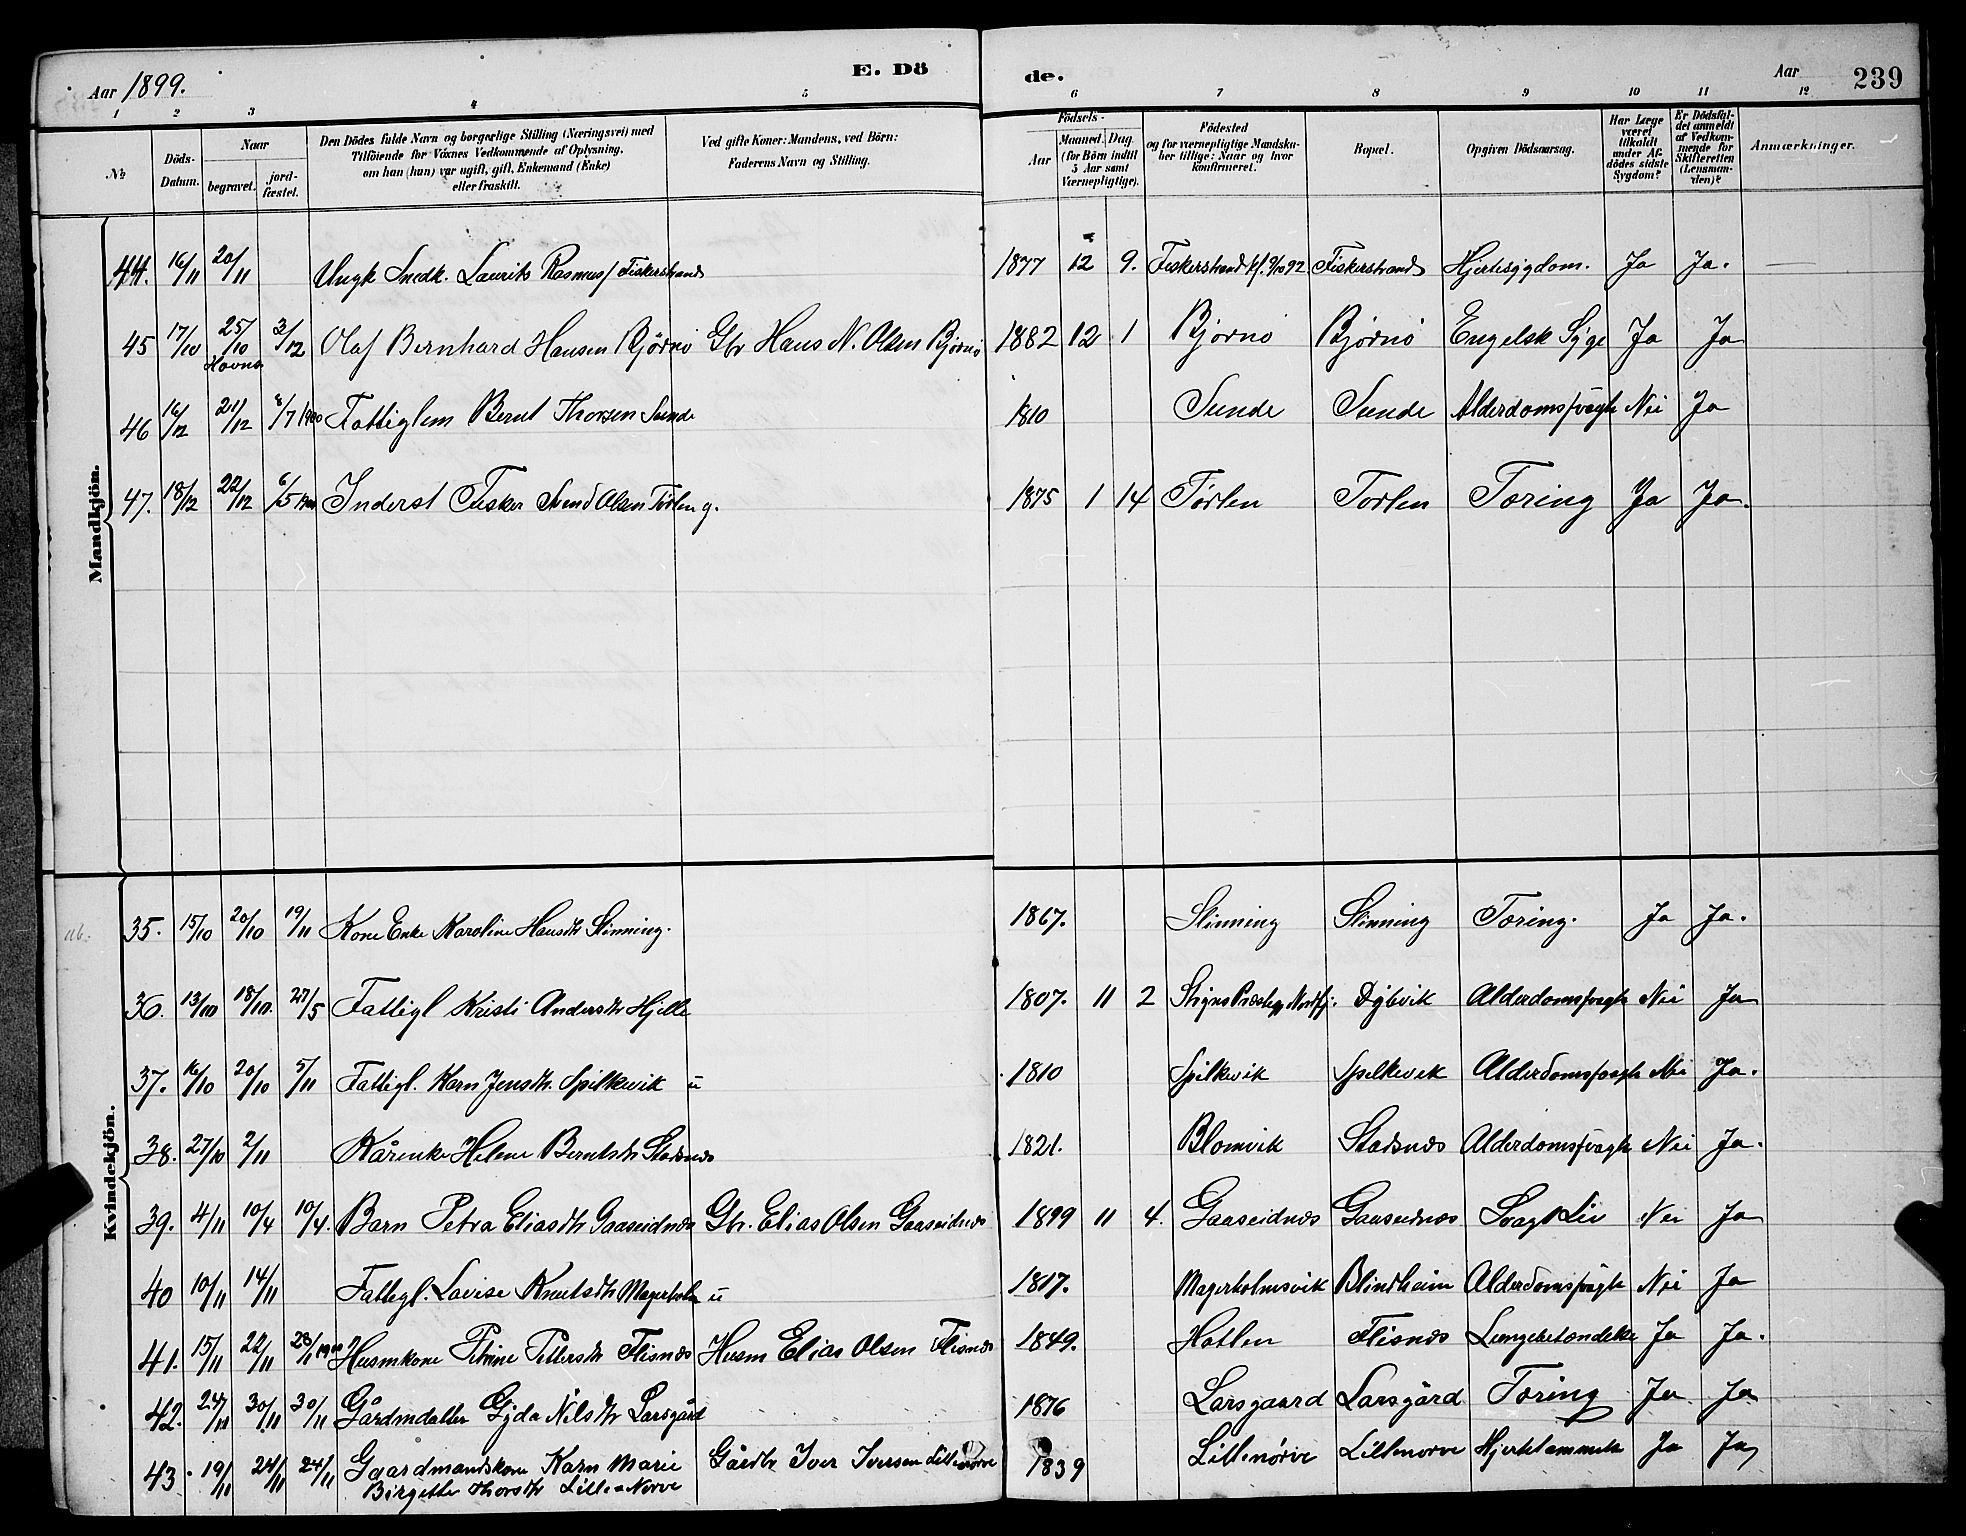 Aar 1899.
E. Dö
de.
Aar
239
1 2 3 4 5 6 7 8 9 10 11 12
№
Döds-
Datum.
Naar
begravet.
jord-
fæstet.
Den Dödes fulde Navn og borgerlige Stilling (Næringsvei) med
Tilföiende for Voxnes Vedkommende af Oplysning,
om han (hun) var ugift, gift, Enkemand (Enke)
eller fraskilt.
Ved gifte Koner: Mandens, ved Börn:
Faderens Navn og Stilling.
Födsels-
Aar
Maaned. Dag.
(for Börn indtil
5 Aar samt
Værnepligtige).
Födested
og for værnepligtige Mandska-
ber tillige: Naar og hvor
konfirmeret.
Bopæl.
Opgiven Dödsaarsag.
Har Læge
været
tilkaldt
under Af-
dödes sidste
Sygdom?
Er Dödsfal-
det anmeldt
af Vedkom-
mende for
Skifteretten
(Lensman-
den)?
Anmærkninger.
Mandkjön.
44. 16/11 20/11 Ungk Snedk. Laurits Rasmus/ Fiskerstrand 1877 12 9. Fiskerstrand kf. 9/10 92 Fiskerstrand Hjertesygdom. Ja Ja. —
45 17/10 25/10 3/12 Olaf Bernhard Hansen Bjørnø Gbr Hans N. Olsen Bjørnø 1882 12 1 Bjørnø Bjørnø Engelsk Syge Ja Ja
Havna
46 16/12 21/12 8/7 1900 Fattiglem Bernt Thorsen Sunde 1810 Sunde Sunde Alderdomssvagh Nei Ja
47. 18/12 22/12 6/5 1900 Inderst Fisker Svend Olsen Tørlen g. 1875 1 14 Tørlen Torlen Tæring Ja Ja.
Kvindekjön.
35. 15/10 20/10 19/11 Kone Enke Karoline Hansdtr Slinning. 1867. Slinning Slinning Tæring. Ja Ja.
36. 13/10 18/10. 27/5 Fattigl Kristi Andersdtr Hjelle 1807. 11 2 Dybvik Alderdomssvagh Nei Ja
37. 16/10 20/10 5/11 Fattigl. Karn Jensdtr. Spilkevik u 1810 Spilkevik Spilkevik Alderdomssvagh Nei Ja.
38. 27/10 2/11 Kårenke Helene Berntsdtr Stadsnæs 1821. Blomvik Stadsnæs Alderdomssvagh Nei Ja.
39. 4/11 10/4 10/4. Barn Petra Eliasdtr Gaaseidnæs Gbr. Elias Olsen Gaaseidnæs 1899 11 4. Gaaseidnæs Gaaseidnæs Svagt Liv Nei Ja
40 10/11 14/11 Fattigl. Lovise Knutsdtr Magerholm u 1817. Magerholmsvik Blindheim Alderdomssvagh Nei Ja
41. 15/11 22/11 28/1 1900 Husmkone Petrine Pettersdtr Flisnæs Husm Elias Olsen Flisnæs 1849. Hatlen Flisnæs Lungebetændelse Ja Ja.
42. 24/11 30/11 30/11 Gårdmdatter Gjda Nilsdtr Larsgård 1876 Larsgaard Larsgård Tæring Ja Ja
43. 19/11 24/11 24/11 Gaardmandskone Karn Marie Gårdbr Iver Iversen Lillenørve 1839 Lillenørve Lillenørve Hjertelammelse Ja Ja
Birgitte Thorsdtr Lille-Nørve